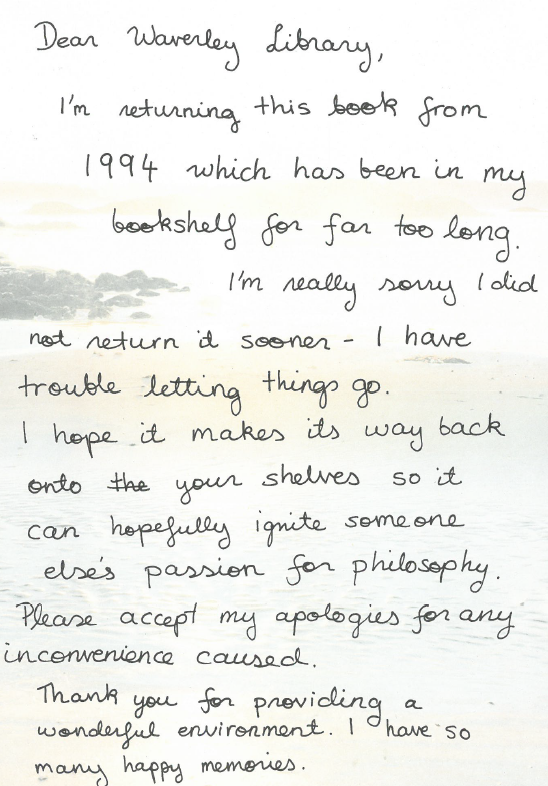 Dear Waverley Library,
I'm returning this book from
1994 which has been in my
bookshelf for far too long.
I'm really sorry I did
not return it sooner - I have
trouble letting things go.
I hope it makes its way back
onto the your shelves so it
can hopefully ignite someone
else's passion for philosophy.
Please accept my apologies for any
inconvenience caused.
Thank you for providing a
wonderful environment. I have so
many happy memories.